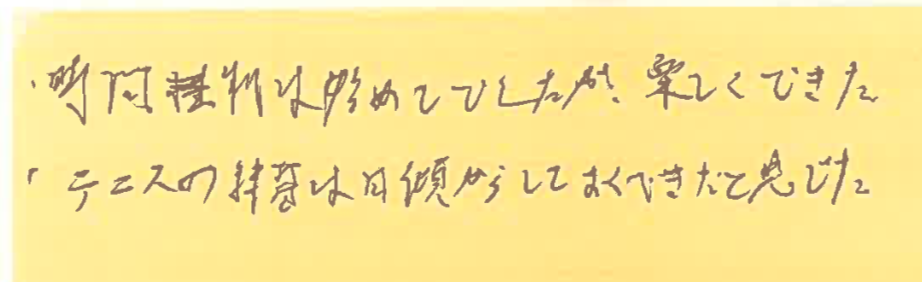 ・時間種料は始めてでしたが、楽しくできた
・テニスの練習は日頃からしておくべきだと感じた